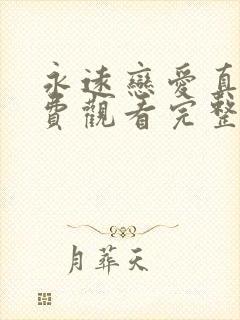 永遠戀愛真
費觀看完整
月葬天